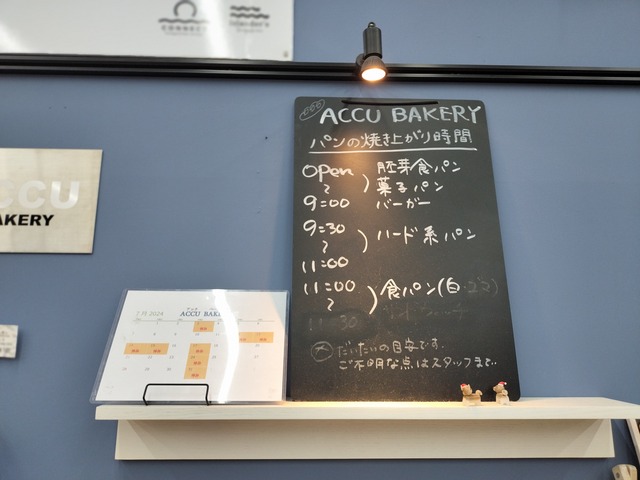 CONNECT
ACCU
BAKERY
ACCU BAKERY
パンの焼き上がり時間
OPEN 胚芽食パン
〜 菓子パン
9:00 バーガー
9:30
〜 ハード系パン
11:00
11:00
〜 食パン(白・ゴマ)
11:30
だいたいの目安です。
ご不明な点はスタッフまで。
7月 2024
ACCU BAKE